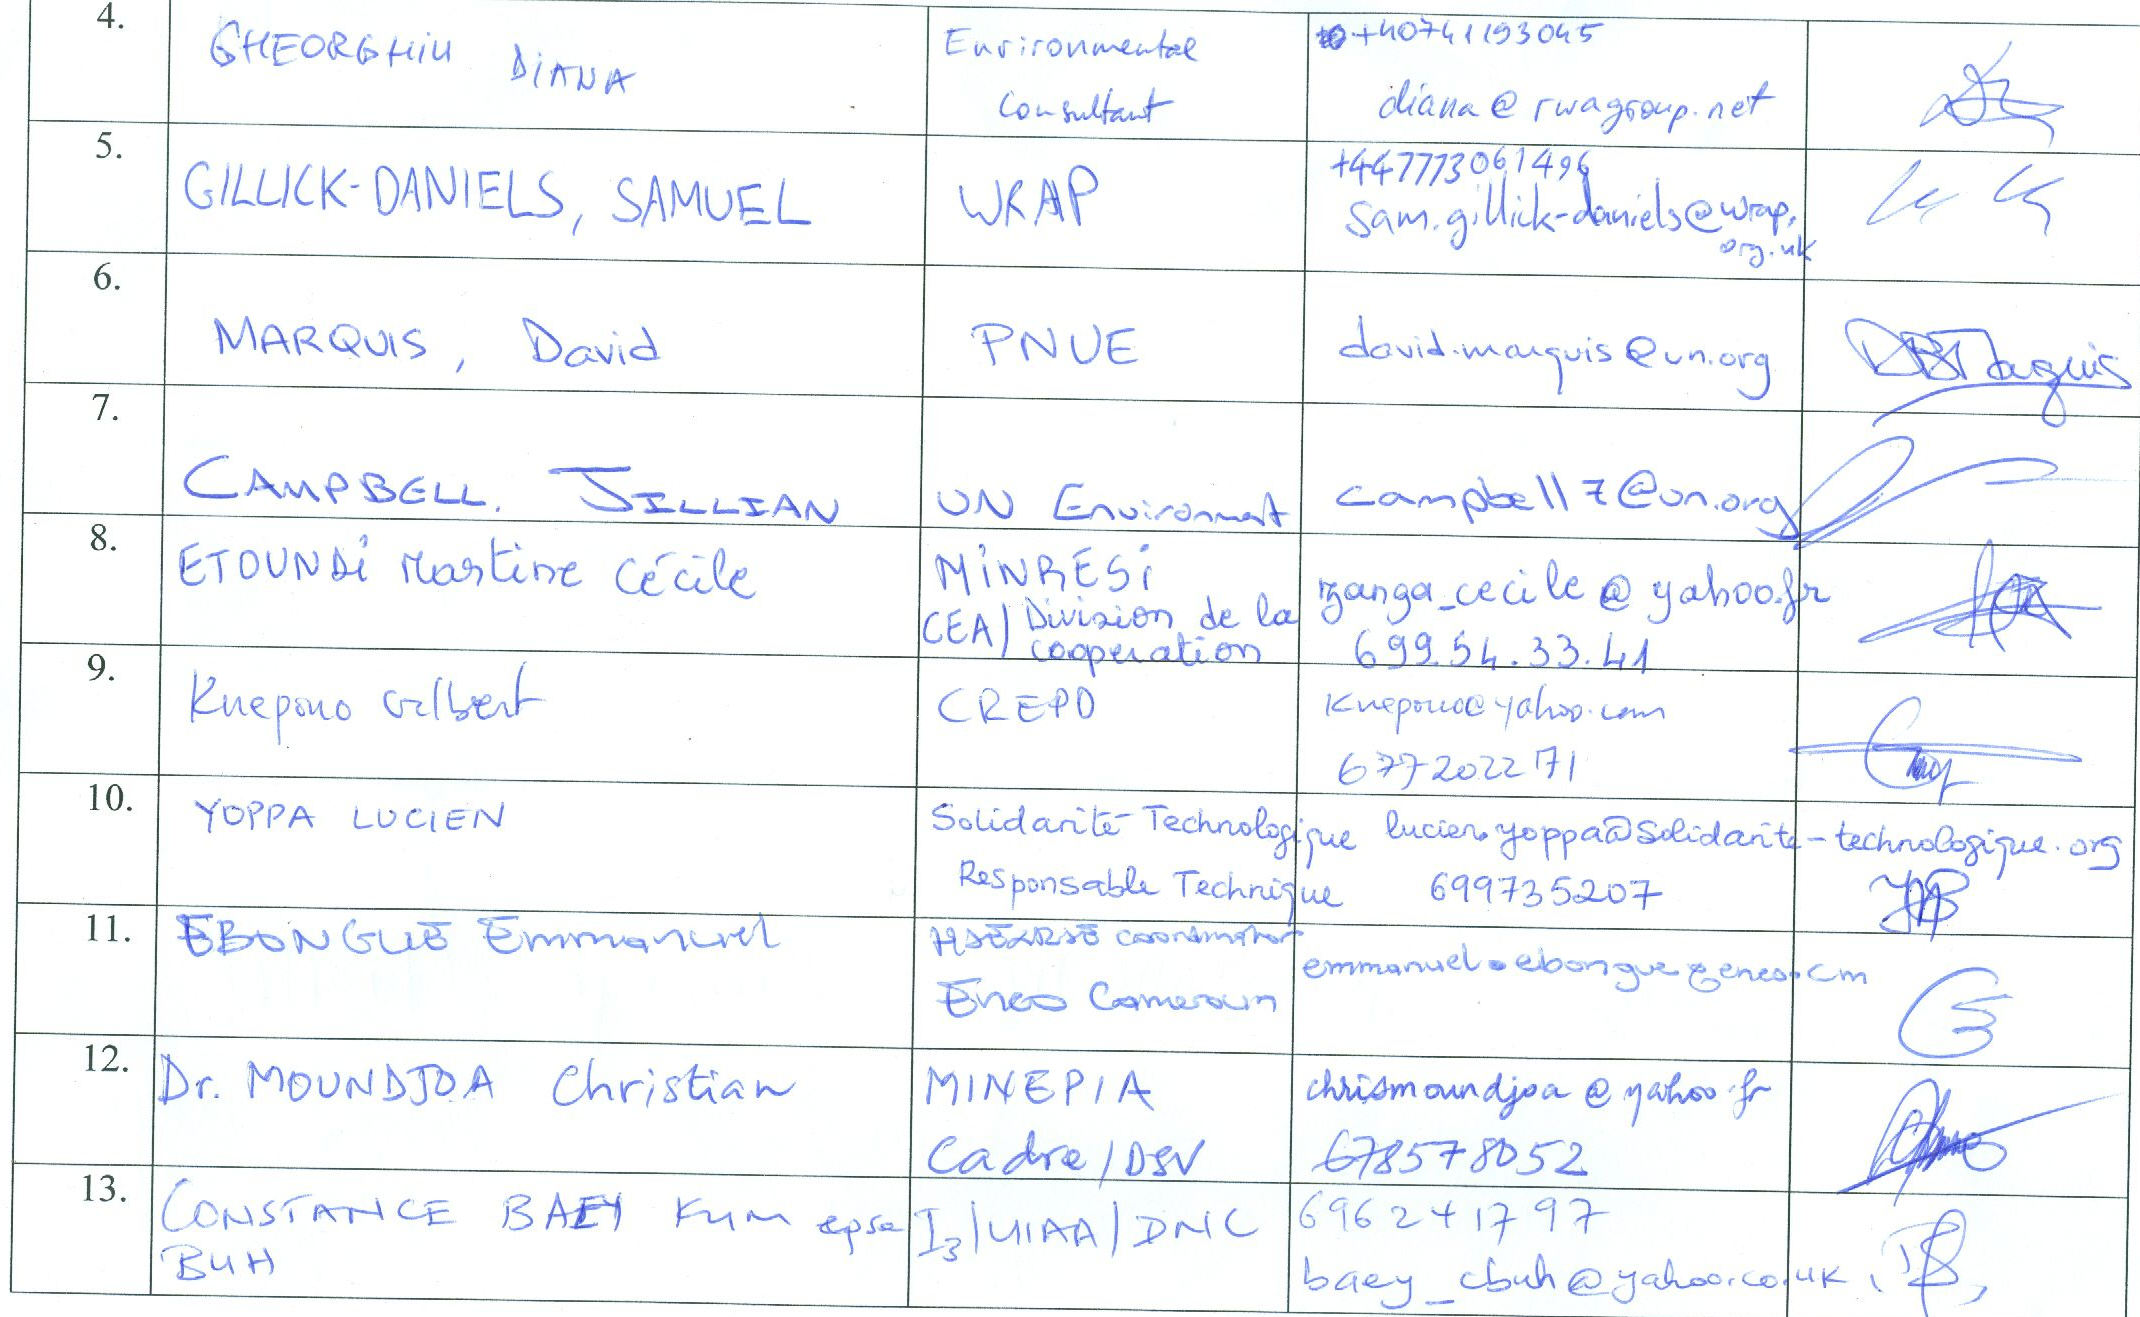 4.
GHEORGHIU DIANA
Environmental
Consultant
+40741193045
diana@rwagroup.net
5.
GILLICK-DANIELS, SAMUEL
WRAP
+447773061496
sam.gillick-daniels@wrap.
org.uk
6.
MARQUIS, David
PNUE
david.marquis@un.org
7.
CAMPBELL, JILLIAN
UN Environment
campbell7@un.org
8.
ETOUNDI Martine Cécile
MINRESI
CEA/ Division de la
cooperation
zanga_cecile@yahoo.fr
699.54.33.41
9.
Kuepouo Gilbert
CREPD
Kuepouo@yahoo.com
677202271
10.
YOPPA LUCIEN
Solidarité Technologique
Responsable Technique
lucien.yoppa@solidarite-technologique.org
699735207
11.
EBONGUE Emmanuel
coordinator
Eneo Cameroun
emmanuel.ebongue@eneo.cm
12.
Dr. MOUNDJOA Christian
MINEPIA
Cadre/DSV
chrismoundjoa@yahoo.fr
678578052
13.
CONSTANCE BAEY KUM epse
BUH
I3/UIAA/DNC
696241797
baey_cbuh@yahoo.co.uk